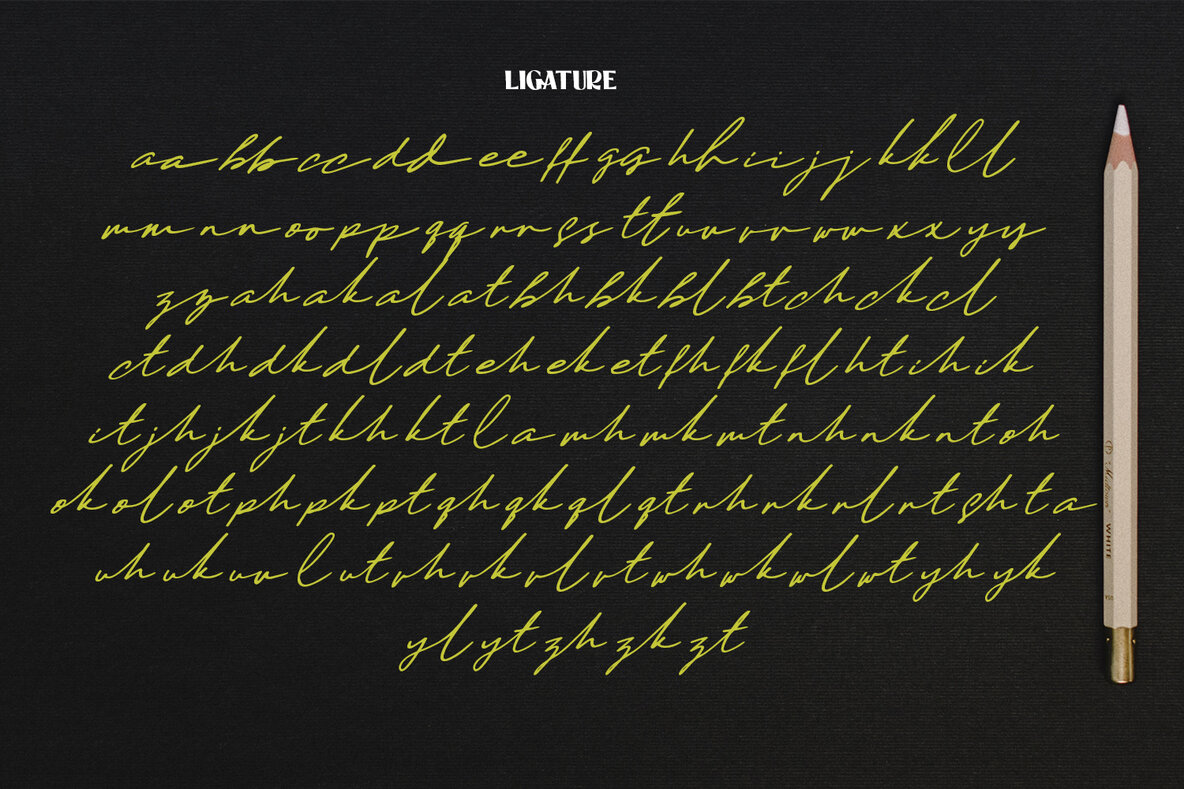 LIGATURE
aa bb cc dd ee ff gg hh ii jj kk ll
mm nn oo pp qq rr ss tt uu vv ww xx yy
zz ah ak al at bh bk bl bt ch ck cl
ct dh dk dl dt eh ek et fh fk fl ht ih ik
it jh jk jt kh kt la mh mk mt nh nk nt oh
ok ol ot ph pk pt qh qk ql qt rh rk rl rt sh ta
uh uk uu l ut vh vk vl vt wh wk wl wt yh yk
yl yt zh zk zt
WHITE